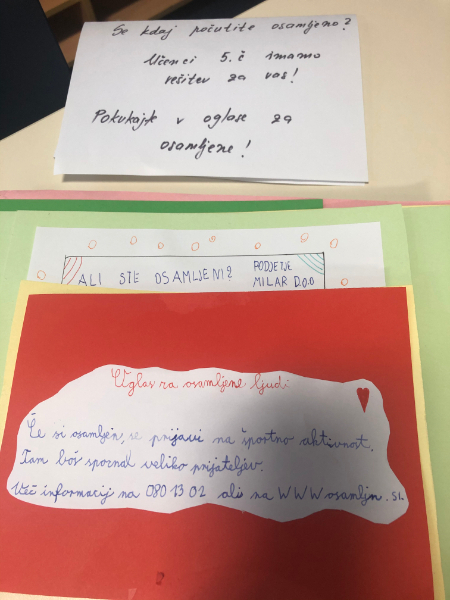 Se kdaj počutite osamljeno?
Učenci 5.č imamo
rešitev za vas!
Pokukajte v oglase za
osamljene!
ALI STE OSAMLJENI? PODJETJE
MILAR D.O.O
Oglas za osamljene ljudi
Če si osamljen, se prijavi na športno aktivnost.
Tam boš spoznal veliko prijateljev.
Več informacij na 080 13 02 ali na WWWosamljn.si.